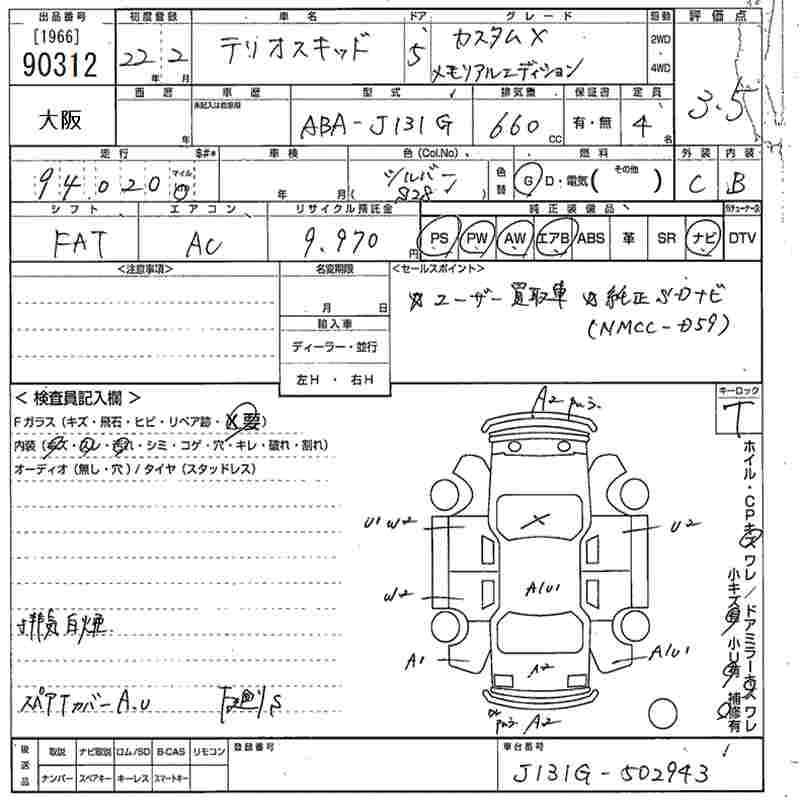 出品番号 初度登録 車名 ドア グレード 駆動 評価点
[1966] 90312 22年 2月 テリオスキッド 5 カスタムX メモリアルエディション 2WD 4WD 3.5
西暦 車歴 型式 排気量 保証書 定員
未記入は自家用
大阪 年 ABA-J131G 660cc 有・無 4名
走行 $#* 車検 色(Col.No) 色替 燃料 外装 内装
94,020 マイル 年 月 シルバー (S28) G D・電気( その他 ) C B
シフト エアコン リサイクル預託金 純正装備品
FAT AC 9,970円 PS PW AW エアB ABS 革 SR ナビ DTV
<注意事項> 名変期限 <セールスポイント>
月 日
☆ユーザー買取車 ☆純正SDナビ
(NMCC-D59)
輸入車
ディーラー・並行
左H ・ 右H
< 検査員記入欄 >
Fガラス (キズ・飛石・ヒビ・リペア跡・X要)
内装 (キズ・汚れ・シミ・コゲ・穴・キレ・破れ・割れ)
オーディオ (無し・穴) / タイヤ (スタッドレス)
排気白煙
スペアTカバーA.U
キーロック
T
ホイル・CPキズ ワレ / ドアミラーキズ ワレ
小キズ有 小U有 補修有
A2
U1 W2
X
U2
W2
A1U1
A1
A2
A1U1
A2
後送品 取説 ナビ取説 ロム/SD B-CAS リモコン
ナンバー スペアキー キーレス スマートキー
登録番号
車台番号
J131G-502943